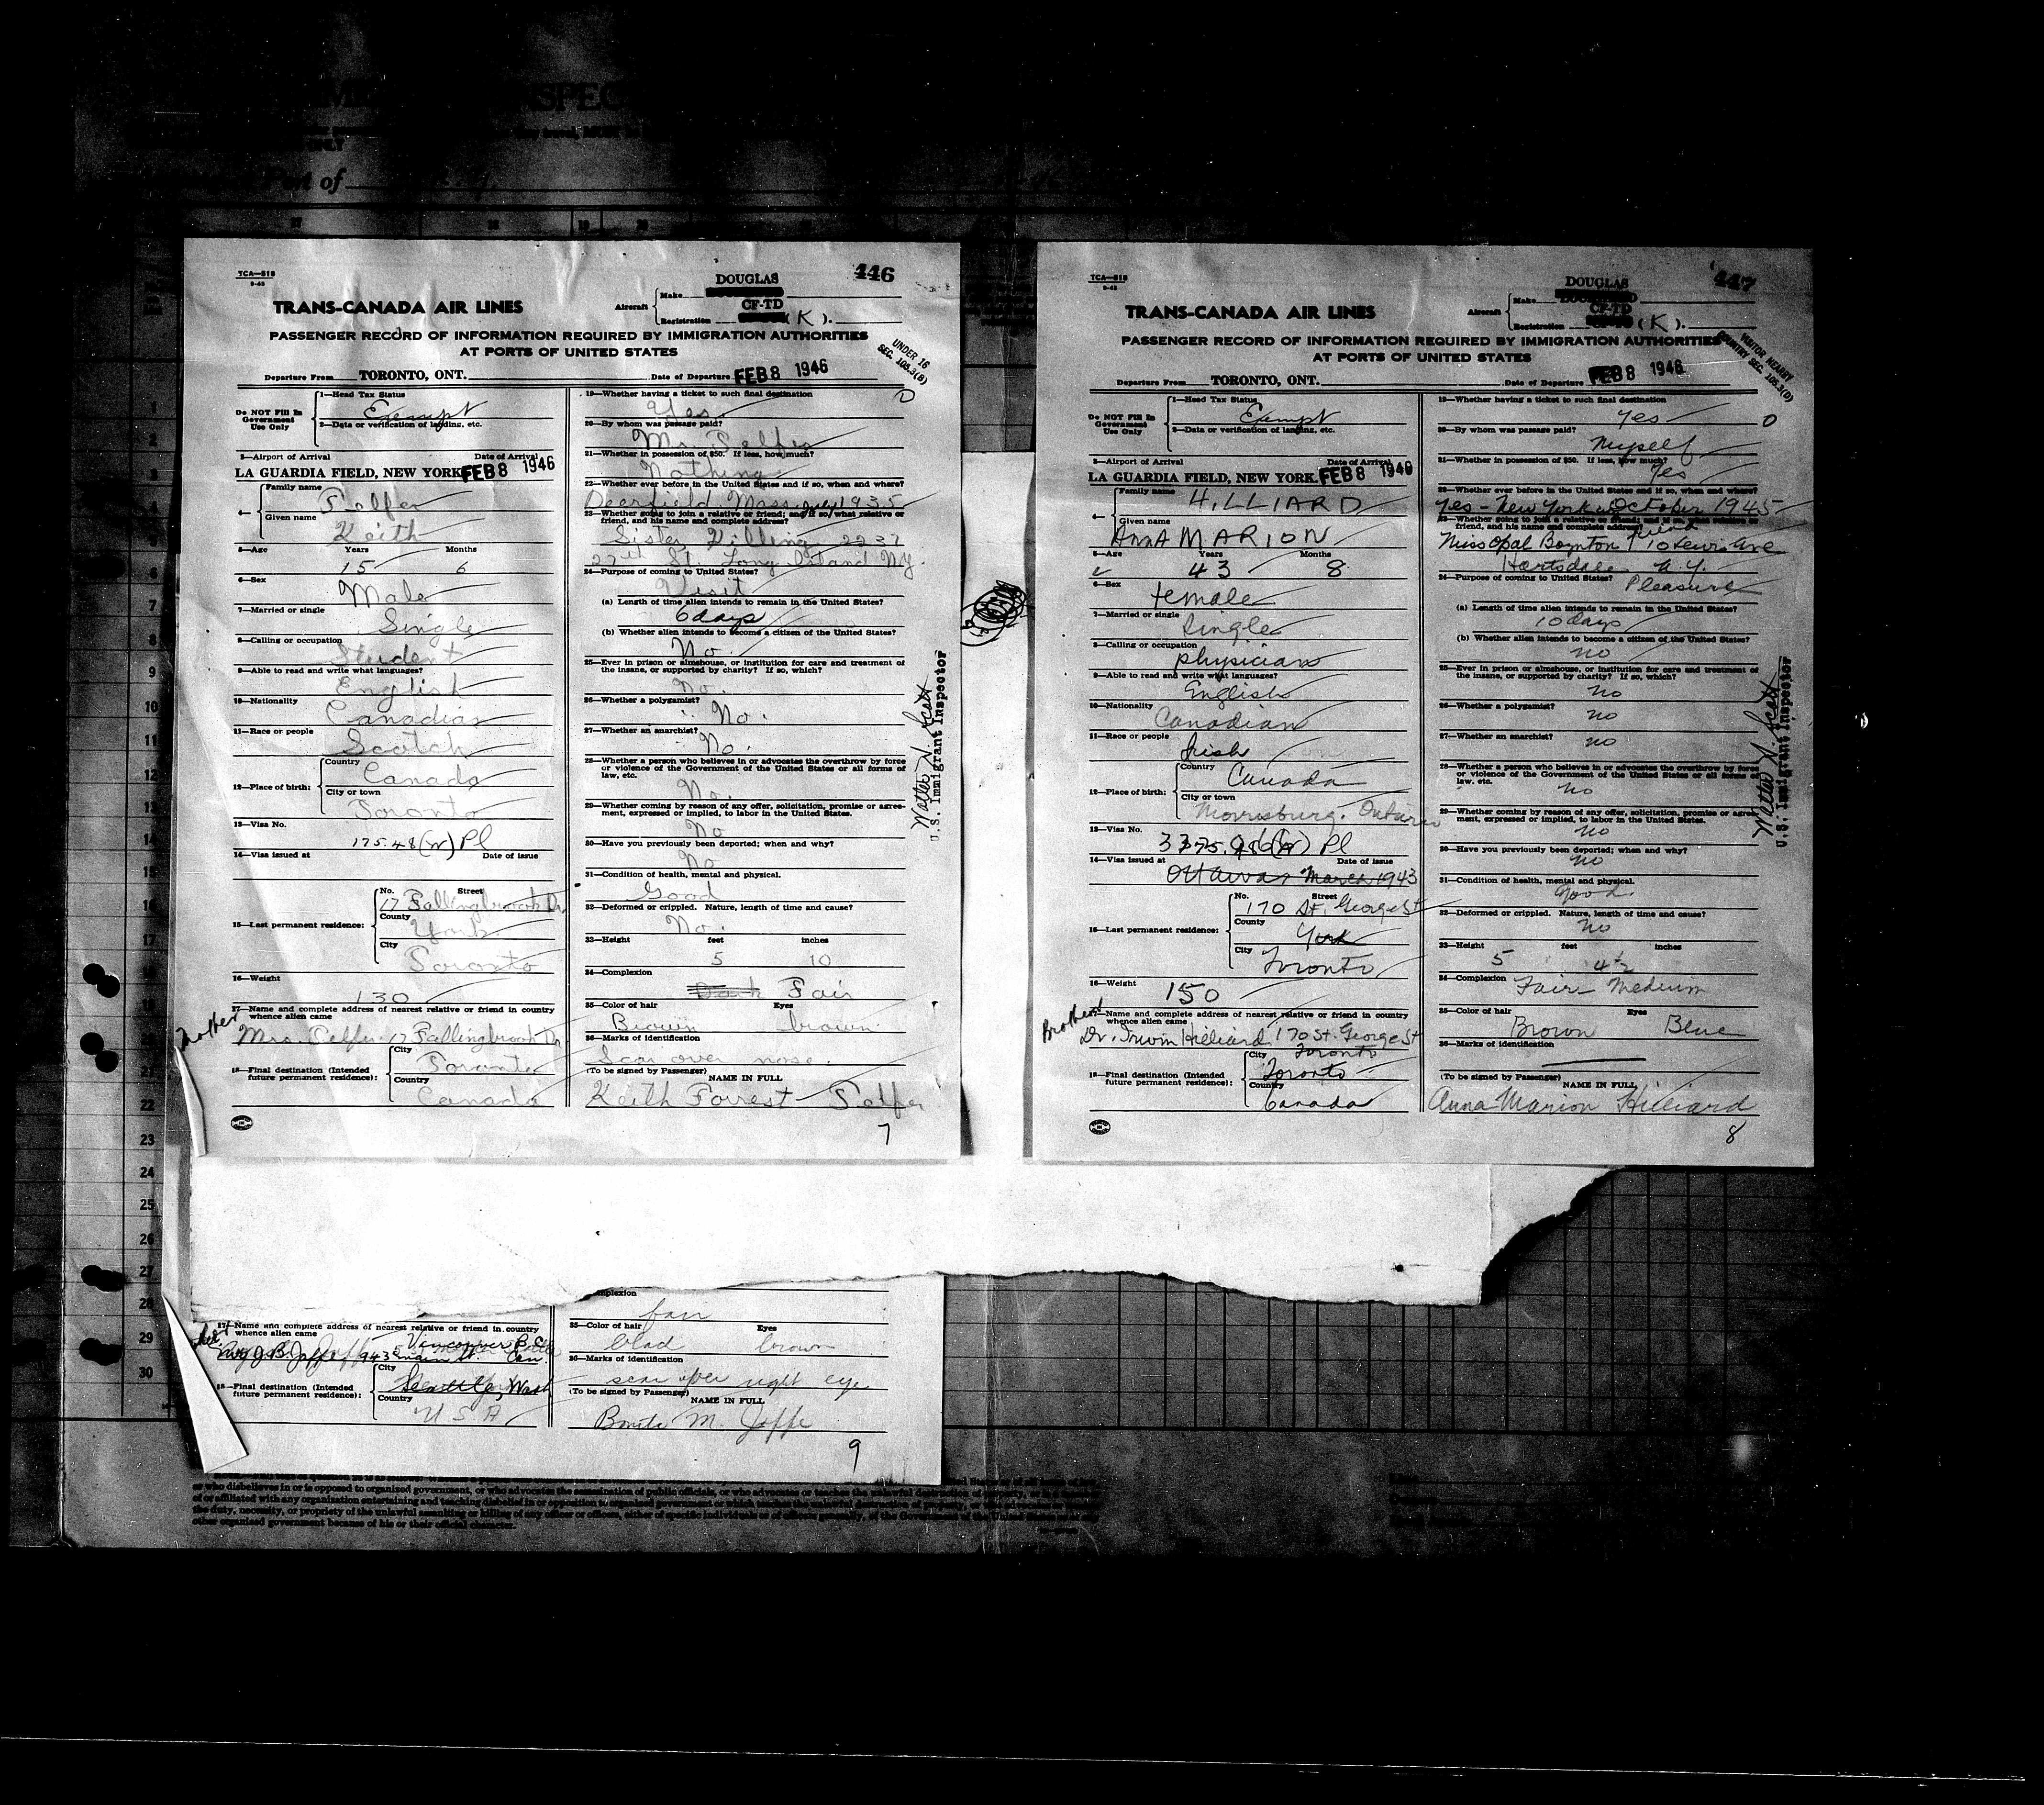 446
TCA—518
9-45
DOUGLAS
Aircraft
Make
CF-TD
Registration (K).
TRANS-CANADA AIR LINES
PASSENGER RECORD OF INFORMATION REQUIRED BY IMMIGRATION AUTHORITIES
AT PORTS OF UNITED STATES
UNDER 16
SEC. 105.3(B)
Departure From TORONTO, ONT. Date of Departure FEB 8 1946
Do NOT Fill In
Government
Use Only
1—Head Tax Status
Exempt
2—Data or verification of landing, etc.
3—Airport of Arrival Date of Arrival
LA GUARDIA FIELD, NEW YORK. FEB 8 1946
4—
Family name
Given name
Keith
5—Age Years Months
15 6
6—Sex
Male
7—Married or single
Single
8—Calling or occupation
Student
9—Able to read and write what languages?
English
10—Nationality
Canadian
11—Race or people
Scotch
12—Place of birth:
Country
Canada
City or town
Toronto
13—Visa No.
175.48(w) Pl
14—Visa issued at Date of issue
15—Last permanent residence:
No. Street
17 Fallingbrook Dr.
County
York
City
Toronto
16—Weight
130
17—Name and complete address of nearest relative or friend in country
whence alien came
Mother
Mrs. 17 Fallingbrook Dr
18—Final destination (Intended
future permanent residence):
City
Toronto
Country
Canada
19—Whether having a ticket to such final destination
Yes
20—By whom was passage paid?
21—Whether in possession of $50. If less, how much?
Nothing
22—Whether ever before in the United States and if so, when and where?
Deerfield Mass July 1935
23—Whether going to join a relative or friend; and if so, what relative or
friend, and his name and complete address?
Sister 2237
27th St. Long Island N.Y.
24—Purpose of coming to United States?
Visit
(a) Length of time alien intends to remain in the United States?
6 days
(b) Whether alien intends to become a citizen of the United States?
No.
25—Ever in prison or almshouse, or institution for care and treatment of
the insane, or supported by charity? If so, which?
No.
26—Whether a polygamist?
No.
27—Whether an anarchist?
No.
28—Whether a person who believes in or advocates the overthrow by force
or violence of the Government of the United States or all forms of
law, etc.
No.
29—Whether coming by reason of any offer, solicitation, promise or agree-
ment, expressed or implied, to labor in the United States.
No
30—Have you previously been deported; when and why?
No
31—Condition of health, mental and physical.
Good
32—Deformed or crippled. Nature, length of time and cause?
No.
33—Height feet inches
5 10
34—Complexion
Dark Fair
35—Color of hair Eyes
Brown brown
36—Marks of identification
Scar over nose.
(To be signed by Passenger)
NAME IN FULL
Keith Forrest
7
Walter N. Scott
U.S. Immigrant Inspector
447
TCA—518
9-45
DOUGLAS
Aircraft
Make
CF-TD
Registration (K).
TRANS-CANADA AIR LINES
PASSENGER RECORD OF INFORMATION REQUIRED BY IMMIGRATION AUTHORITIES
AT PORTS OF UNITED STATES
VISITOR NEARBY
COUNTRY SEC. 105.3(D)
Departure From TORONTO, ONT. Date of Departure FEB 8 1946
Do NOT Fill In
Government
Use Only
1—Head Tax Status
Exempt
2—Data or verification of landing, etc.
3—Airport of Arrival Date of Arrival
LA GUARDIA FIELD, NEW YORK. FEB 8 1946
4—
Family name
HILLIARD
Given name
AnnA MARION
5—Age Years Months
43 8
6—Sex
female
7—Married or single
Single
8—Calling or occupation
physician
9—Able to read and write what languages?
English
10—Nationality
Canadian
11—Race or people
Irish
12—Place of birth:
Country
Canada
City or town
Morrisburg, Ontario
13—Visa No.
14—Visa issued at Date of issue
Ottawa March 1943
15—Last permanent residence:
No. Street
170 St. George St
County
York
City
Toronto
16—Weight
150
17—Name and complete address of nearest relative or friend in country
whence alien came
Brother
Dr. Irwin Hilliard 170 St. George St
Toronto
18—Final destination (Intended
future permanent residence):
City
Toronto
Country
Canada
19—Whether having a ticket to such final destination
Yes
20—By whom was passage paid?
Myself
21—Whether in possession of $50. If less, how much?
Yes
22—Whether ever before in the United States and if so, when and where?
Yes - New York October 1945
23—Whether going to join a relative or friend; and if so, what relative or
friend, and his name and complete address?
friend
Miss Opal Boynton 10 Lewis Ave
Hartsdale N.Y.
24—Purpose of coming to United States?
Pleasure
(a) Length of time alien intends to remain in the United States?
10 days
(b) Whether alien intends to become a citizen of the United States?
no
25—Ever in prison or almshouse, or institution for care and treatment of
the insane, or supported by charity? If so, which?
no
26—Whether a polygamist?
no
27—Whether an anarchist?
no
28—Whether a person who believes in or advocates the overthrow by force
or violence of the Government of the United States or all forms of
law, etc.
no
29—Whether coming by reason of any offer, solicitation, promise or agree-
ment, expressed or implied, to labor in the United States.
no
30—Have you previously been deported; when and why?
no
31—Condition of health, mental and physical.
good
32—Deformed or crippled. Nature, length of time and cause?
no
33—Height feet inches
5 4½
34—Complexion
Fair - Medium
35—Color of hair Eyes
Brown Blue
36—Marks of identification
(To be signed by Passenger)
NAME IN FULL
Anna Marion Hilliard
8
Walter N. Scott
U.S. Immigrant Inspector
17—Name and complete address of nearest relative or friend in country
whence alien came
Vancouver B.C.
J.B. Jaffe Can.
18—Final destination (Intended
future permanent residence):
City
Seattle, Wash
Country
U S A
fair
35—Color of hair Eyes
brown
36—Marks of identification
scar over right eye
(To be signed by Passenger)
NAME IN FULL
M. Jaffe
9
or who disbelieves in or is opposed to organized government, or who advocates the assassination of public officials, or who advocates or teaches the unlawful destruction of property,